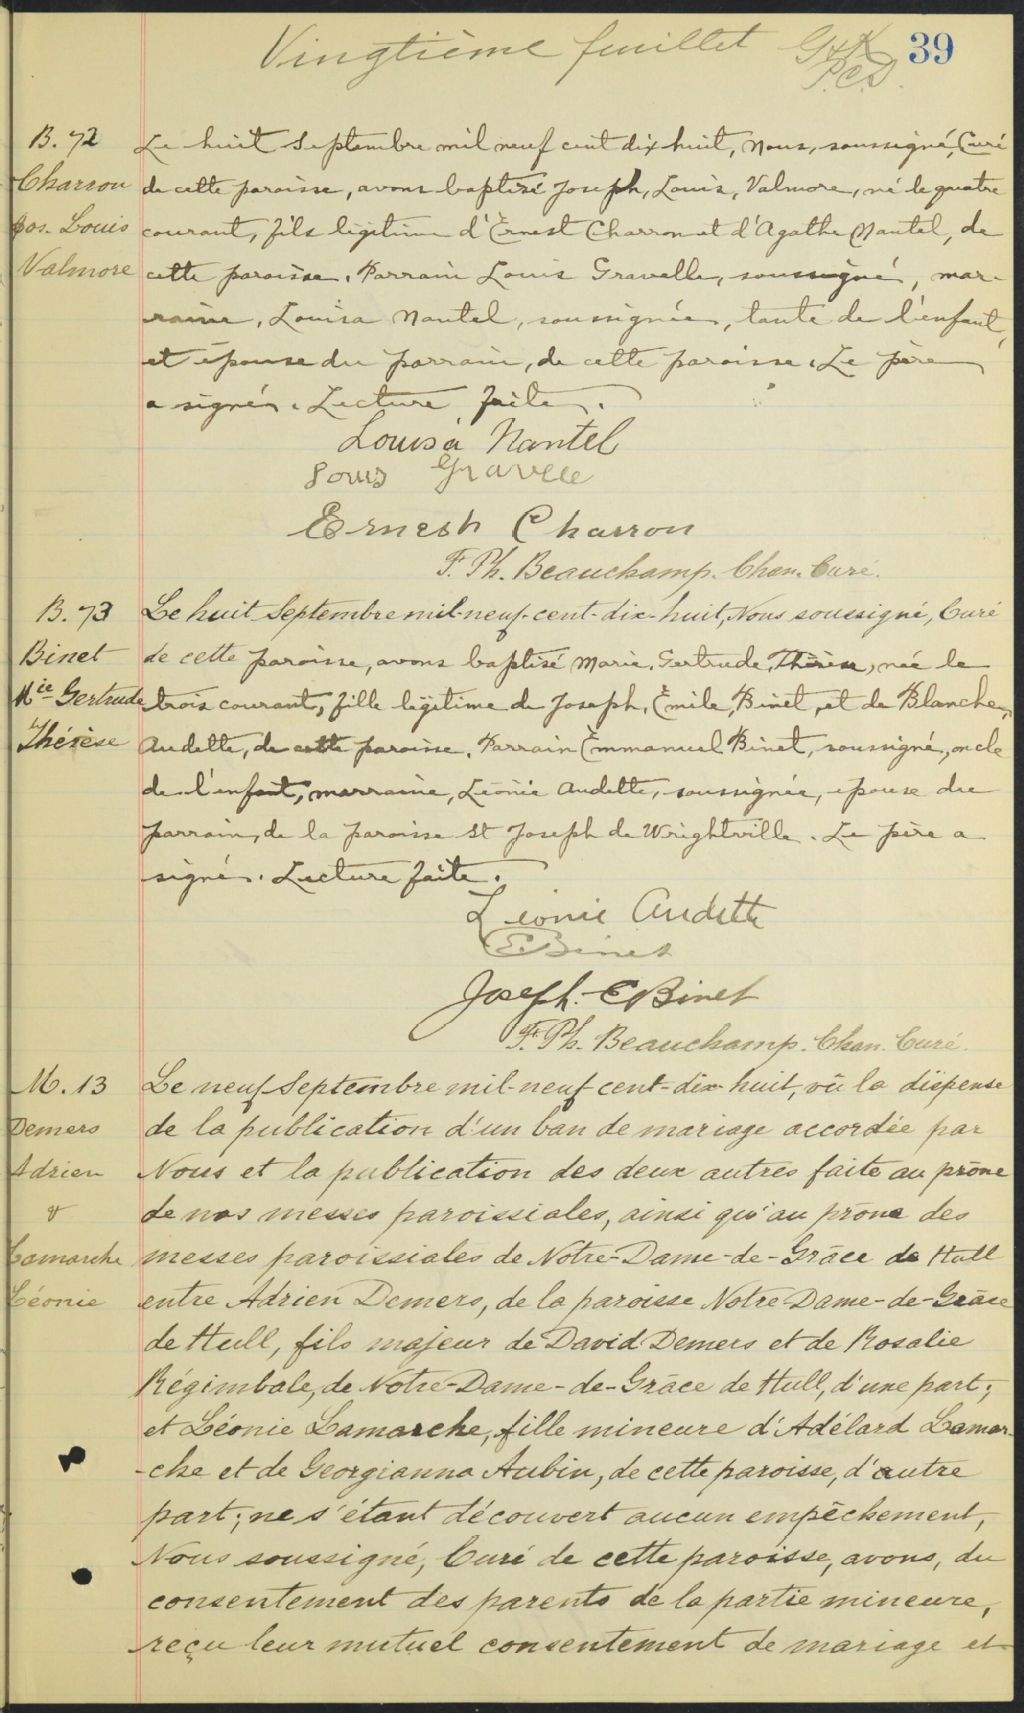 Vingtième feuillet
39
P.C.S.
B. 72
Charron
Jos. Louis
Valmore
Le huit Septembre mil neuf cent dix huit, Nous, soussigné, Curé
de cette paroisse, avons baptisé Joseph, Louis, Valmore, né le quatre
courant, fils légitime d'Ernest Charron et d'Agathe Nantel, de
cette paroisse. Parrain Louis Gravelle, soussigné, mar-
raine, Louisa Nantel, soussignée, tante de l'enfant,
et épouse du parrain, de cette paroisse. Le père
a signé. Lecture faite.
Louisa Nantel
Louis Gravelle
Ernesh Charron
F. Ph. Beauchamp. Chan. Curé.
B. 73
Binet
Mie Gertrude
Thérèse
Le huit Septembre mil-neuf-cent-dix-huit, Nous soussigné, Curé
de cette paroisse, avons baptisé Marie, Gertrude, Thérèse, née le
trois courant, fille légitime de Joseph, Émile, Binet, et de Blanche,
Audette, de cette paroisse. Parrain Emmanuel Binet, soussigné, oncle
de l'enfant, marraine, Léonie Audette, soussignée, épouse du
parrain, de la paroisse St Joseph de Wrightville. Le père a
signé. Lecture faite.
Léonie Audette
E Binet
Joseph. E Binet
F. Ph. Beauchamp. Chan. Curé.
M. 13
Demers
Adrien
&
Lamarche
Léonie
Le neuf Septembre mil-neuf cent-dix-huit, vû la dispense
de la publication d'un ban de mariage accordée par
Nous et la publication des deux autres faite au prône
de nos messes paroissiales, ainsi qu'au prône des
messes paroissiales de Notre-Dame-de-Grâce de Hull
entre Adrien Demers, de la paroisse Notre-Dame-de-Grâce
de Hull, fils majeur de David Demers et de Rosalie
Régimbale, de Notre-Dame-de-Grâce de Hull, d'une part;
et Léonie Lamarche, fille mineure d'Adélard Lamar-
-che et de Georgianna Aubin, de cette paroisse, d'autre
part; ne s'étant découvert aucun empêchement,
Nous soussigné, Curé de cette paroisse, avons, du
consentement des parents de la partie mineure,
reçu leur mutuel consentement de mariage et